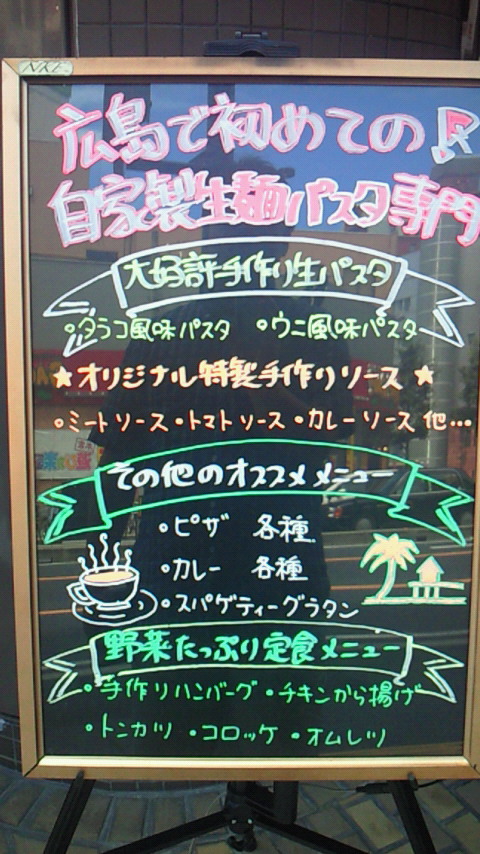 NKE
広島で初めての!
自家製生麺パスタ専門
大好評手作り生パスタ
・タラコ風味パスタ ・ウニ風味パスタ
★オリジナル特製手作りソース★
・ミートソース・トマトソース・カレーソース他…
その他のオススメメニュー
・ピザ 各種
・カレー 各種
・スパゲティーグラタン
野菜たっぷり定食メニュー
・手作りハンバーグ・チキンから揚げ
・トンカツ ・コロッケ ・オムレツ